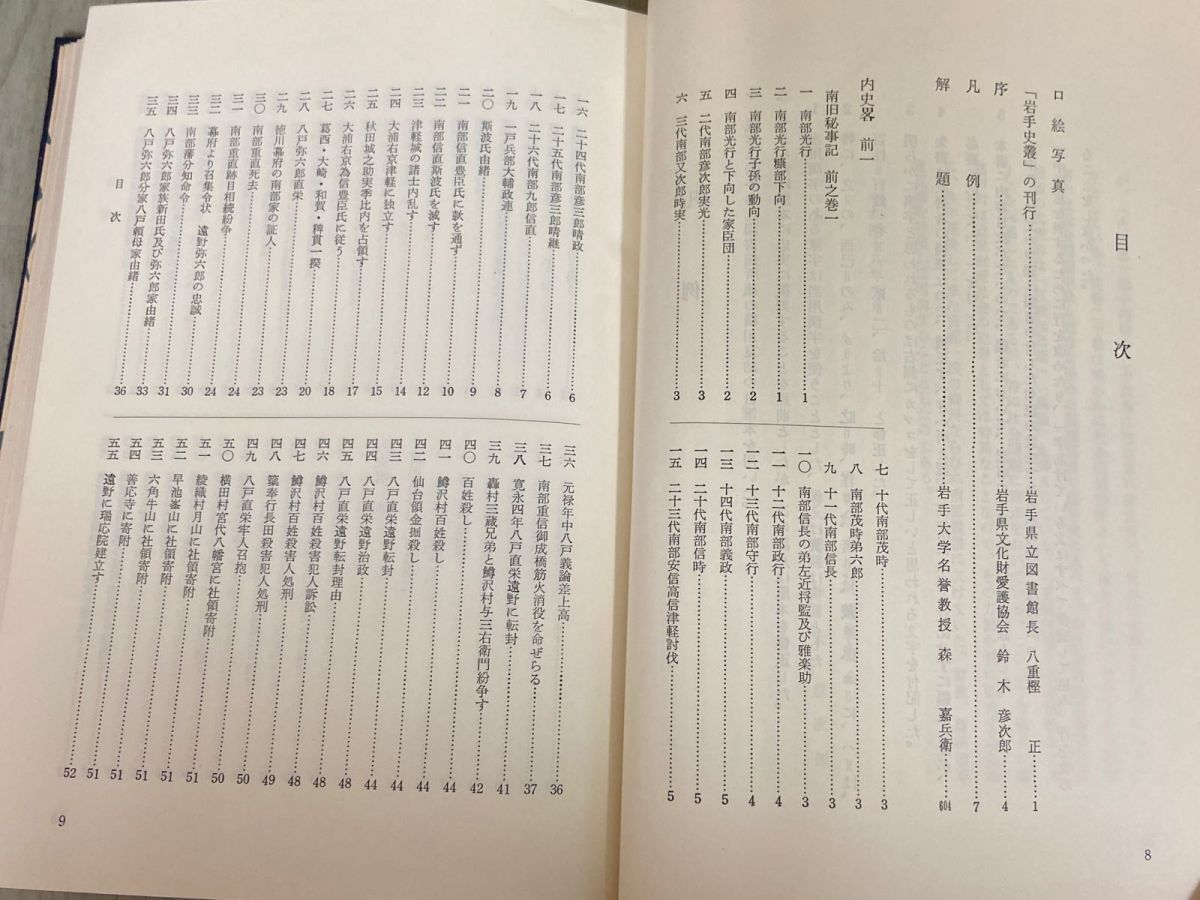 目次
口絵写真
「岩手史叢」の刊行……岩手県立図書館長 八重樫 正……1
序……岩手県文化財愛護協会 鈴木彦次郎……4
凡例……7
解題……岩手大学名誉教授 森 嘉兵衛……604
内史畧 前一
南旧秘事記 前之巻一
一 南部光行……1
二 南部光行糠部下向……1
三 南部光行子孫の動向……2
四 南部光行と下向した家臣団……2
五 二代南部彦次郎実光……3
六 三代南部又次郎時実……3
七 十代南部茂時……3
八 南部茂時弟六郎……3
九 十一代南部信長……3
一〇 南部信長の弟左近将監及び雅楽助……3
一一 十二代南部政行……4
一二 十三代南部守行……4
一三 十四代南部義政……5
一四 二十代南部信時……5
一五 二十三代南部安信高信津軽討伐……5
8
一六 二十四代南部彦三郎晴政……6
一七 二十五代南部彦三郎晴継……6
一八 二十六代南部九郎信直……7
一九 一戸兵部大輔政連……8
二〇 斯波氏由緒……9
二一 南部信直豊臣氏に欵を通ず……10
二二 南部信直斯波氏を滅す……12
二三 津軽城の諸士内乱す……14
二四 大浦右京津軽に独立す……14
二五 秋田城之助実季比内を占領す……15
二六 大浦右京為信豊臣氏に従う……17
二七 葛西・大崎・和賀・稗貫一揆……18
二八 八戸弥六郎直栄……20
二九 徳川幕府の南部家の証人……23
三〇 南部重直死去……23
三一 南部重直跡目相続紛争……24
三二 幕府より召集令状 遠野弥六郎の忠誠……24
三三 南部藩分知命令……30
三四 八戸弥六郎家族新田氏及び弥六郎家由緒……31
三五 八戸弥六郎分家八戸頼母家由緒……33
目次
36
三六 元禄年中八戸義論差上高……36
三七 南部重信御成橋筋火消役を命ぜらる……37
三八 寛永四年八戸直栄遠野に転封……41
三九 轟村三蔵兄弟と鱒沢村与三右衛門紛争す……42
四〇 百姓殺し……44
四一 鱒沢村百姓殺し……44
四二 仙台領金掘殺し……44
四三 八戸直栄遠野治政……44
四四 八戸直栄遠野転封理由……48
四五 鱒沢村百姓殺害犯人訴訟……48
四七 鱒沢村百姓殺害犯人処刑……48
四八 簗奉行長田殺害犯人処刑……49
四九 八戸直栄牢人召抱……50
五〇 横田村宮代八幡宮に社領寄附……50
五一 綾織村月山に社領寄附……51
五二 早池峯山に社領寄附……51
五三 六角牛山に社領寄附……51
五四 善応寺に寄附……51
五五 遠野に瑞応院建立す……52
9